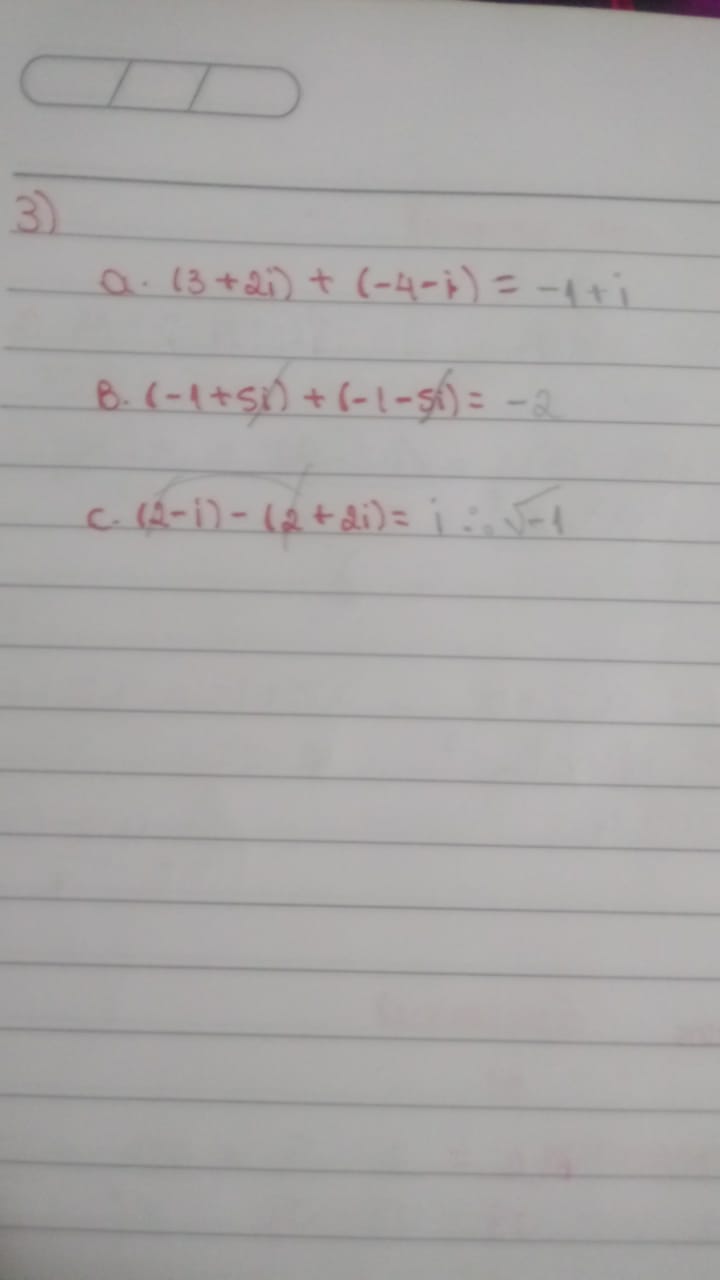 3)
a. (3+2i) + (-4-i) = -1+i
B. (-1+5i) + (-1-5i) = -2
c. (2-i) - (2+2i) = i ∴ √-1